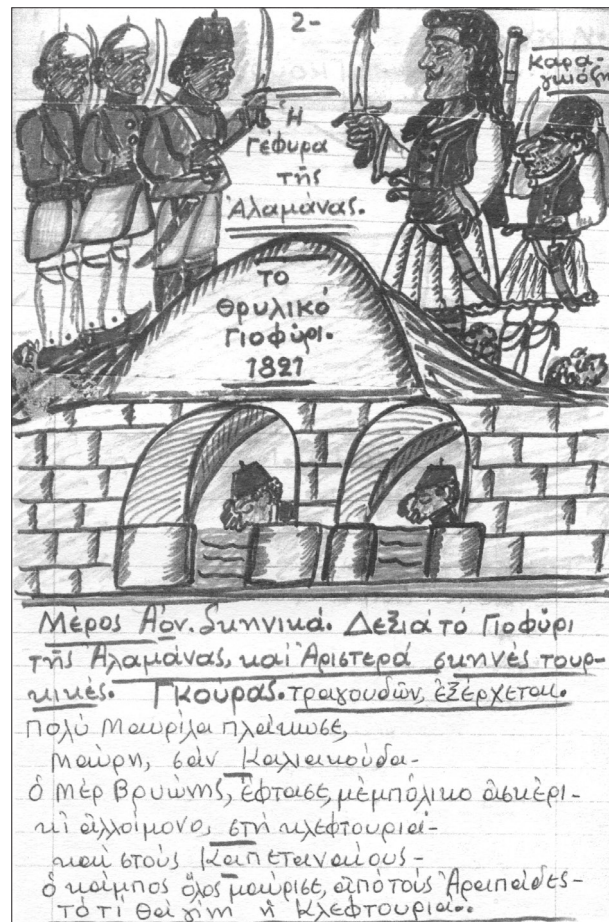 2-
Καρα-
γκιόζη
Ἡ
Γέφυρα
τῆς
Ἀλαμάνας.
ΤΟ
Θρυλικό
Γιοφύρι.
1821
Μέρος Αον. Σκηνικά. Δεξιά τό Γιοφύρι
τῆς Ἀλαμάνας, καί Ἀριστερά σκηνές τουρ-
κικές. Γκούρας. τραγουδῶν, ἐξέρχεται.
Πολύ Μαυρίλα πλάκωσε,
μαύρη, σάν Καλιακούδα-
ὁ Μέρ Βρυώνης, ἔφτασε, μέ μπόλικο ἀσκέρι-
κι ἀλλοίμονο, στή κλεφτουριά-
καί στούς Καπετανάιους-
ὁ κάμπος ὅλος μαύρισε, ἀπό τούς Ἀραπάδες-
τό τί θα γίνη ἡ Κλεφτουριά..